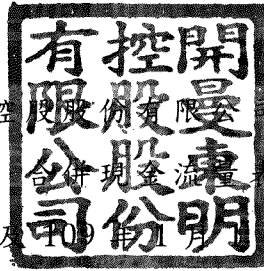 開曼東明
控股股份
有限公司
控股股份有限公司
合併現金流量表
及 109 年 1 月